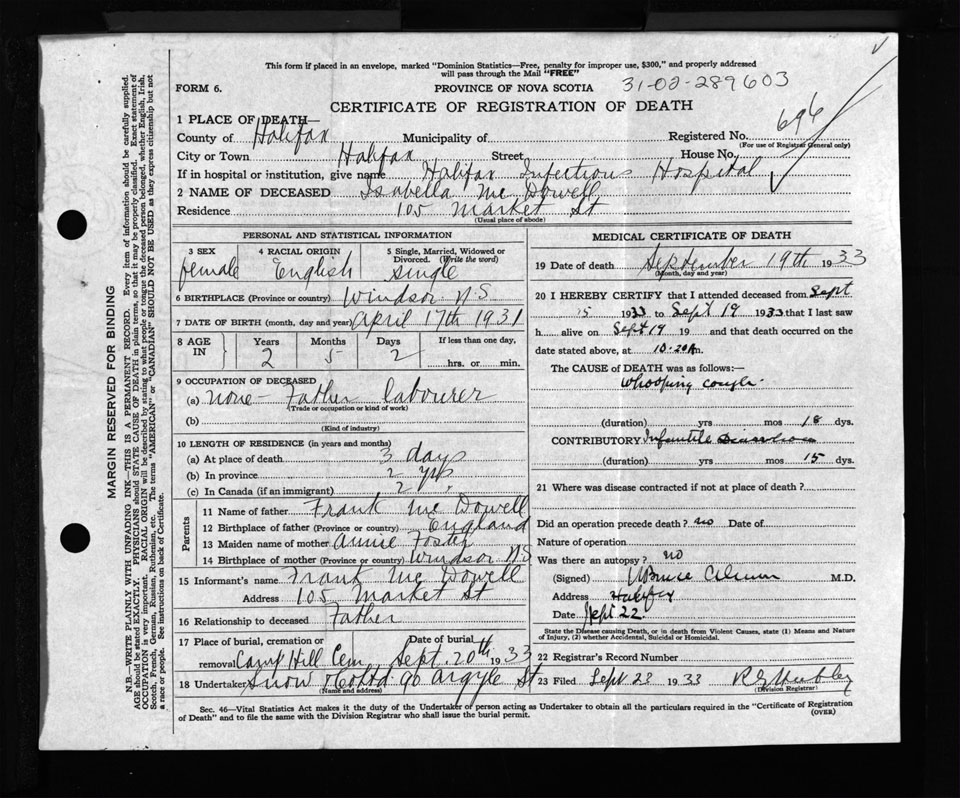 This form if placed in an envelope, marked "Dominion Statistics—Free, penalty for improper use, $300," and properly addressed
will pass through the Mail "FREE"
FORM 6. PROVINCE OF NOVA SCOTIA 31-02-289603
CERTIFICATE OF REGISTRATION OF DEATH
1 PLACE OF DEATH—
County of Halifax Municipality of Registered No. 696
(For use of Registrar General only)
City or Town Halifax Street House No.
If in hospital or institution, give name Halifax Infectious Hospital
2 NAME OF DECEASED Isabella Mc Dowell
Residence 105 Market St
(Usual place of abode)
PERSONAL AND STATISTICAL INFORMATION
3 SEX 4 RACIAL ORIGIN 5 Single, Married, Widowed or
Divorced. (Write the word)
female English single
6 BIRTHPLACE (Province or country) Windsor NS
7 DATE OF BIRTH (month, day and year) April 17th 1931
8 AGE IN Years Months Days If less than one day,
2 5 2 hrs. or min.
9 OCCUPATION OF DECEASED
(a) none - Father labourer
(Trade or occupation or kind of work)
(b)
(Kind of industry)
10 LENGTH OF RESIDENCE (in years and months)
(a) At place of death 3 days
(b) In province 2 yrs
(c) In Canada (if an immigrant) 2 "
Parents
11 Name of father Frank Mc Dowell
12 Birthplace of father (Province or country) England
13 Maiden name of mother Annie Foster
14 Birthplace of mother (Province or country) Windsor NS
15 Informant's name Frank Mc Dowell
Address 105 Market St
16 Relationship to deceased Father
17 Place of burial, cremation or Date of burial
removal Camp Hill Cem Sept. 20th 1933
18 Undertaker Snow & Co Ltd 90 Argyle St
(Name and address)
MEDICAL CERTIFICATE OF DEATH
19 Date of death September 19th 1933
(Month, day and year)
20 I HEREBY CERTIFY that I attended deceased from Sept
15 1933 to Sept 19 1933 that I last saw
h alive on Sept 19 19 and that death occurred on the
date stated above, at 10.20 A m.
The CAUSE of DEATH was as follows:—
Whooping cough.
(duration) yrs mos 18 dys.
CONTRIBUTORY Infantile Diarrhoea
(duration) yrs mos 15 dys.
21 Where was disease contracted if not at place of death?
Did an operation precede death? no Date of
Nature of operation
Was there an autopsy? no
(Signed) Bruce M.D.
Address Halifax
Date Sept 22
State the Disease causing Death, or in death from Violent Causes, state (1) Means and Nature
of Injury, (2) whether Accidental, Suicidal or Homicidal.
22 Registrar's Record Number
23 Filed Sept 23 1933
(Division Registrar)
Sec. 46—Vital Statistics Act makes it the duty of the Undertaker or person acting as Undertaker to obtain all the particulars required in the "Certificate of Registration
of Death" and to file the same with the Division Registrar who shall issue the burial permit. (OVER)
MARGIN RESERVED FOR BINDING
N.B.—WRITE PLAINLY WITH UNFADING INK—THIS IS A PERMANENT RECORD. Every item of information should be carefully supplied.
AGE should be stated EXACTLY. PHYSICIANS should STATE CAUSE OF DEATH in plain terms, so that it may be properly classified. Exact statement of
OCCUPATION is very important. RACIAL ORIGIN will be described by stating to what people or tongue the deceased person belonged, whether English, Irish,
Scotch, French, German, Russian, Ruthenian, etc. The terms "AMERICAN" or "CANADIAN" SHOULD NOT BE USED as they express citizenship but not
a race or people. See instructions on back of Certificate.